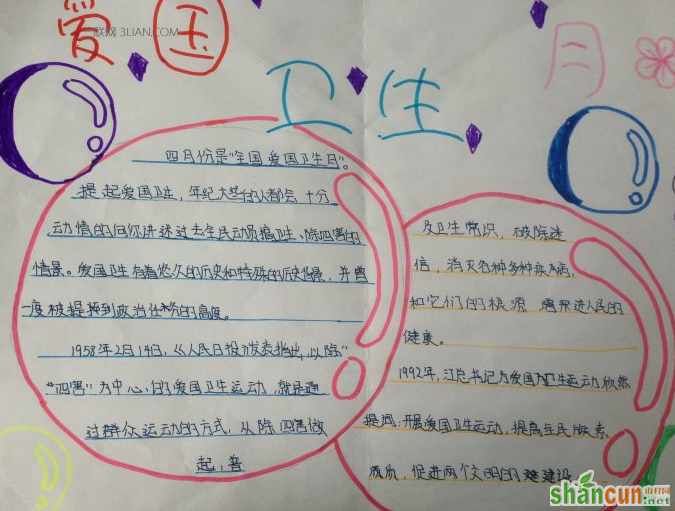 爱国
卫生
月
联网 3LIAN.COM
四月份是“全国爱国卫生月”。
提起爱国卫生,年纪大些的人都会十分
动情的向你讲述过去全民动员搞卫生、除四害的
情景。爱国卫生有着悠久的历史和特殊的历史背景,并曾
一度被提到政治任务的高度。
1958年2月14日,《人民日报》发表指出,以除
“四害”为中心的爱国卫生运动,就是通
过群众运动的方式,从除四害做
起,普
及卫生常识,破除迷
信,消灭各种多种疾病
和它们的根源,增进人民的
健康。
1992年,江总书记为爱国卫生运动欣然
提词:开展爱国卫生运动,提高全民族素
质,促进两个文明的建设
shancun
.net